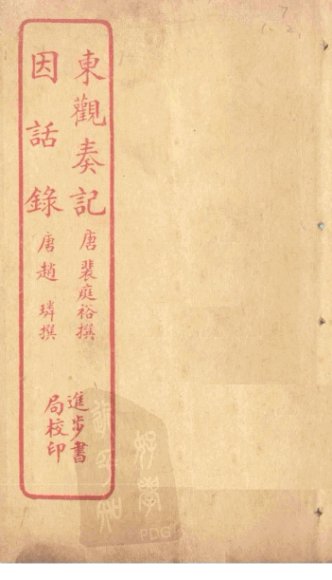 東觀奏記 唐裴庭裕撰
因話錄 唐趙璘撰
進步書
局校印
7
PDG